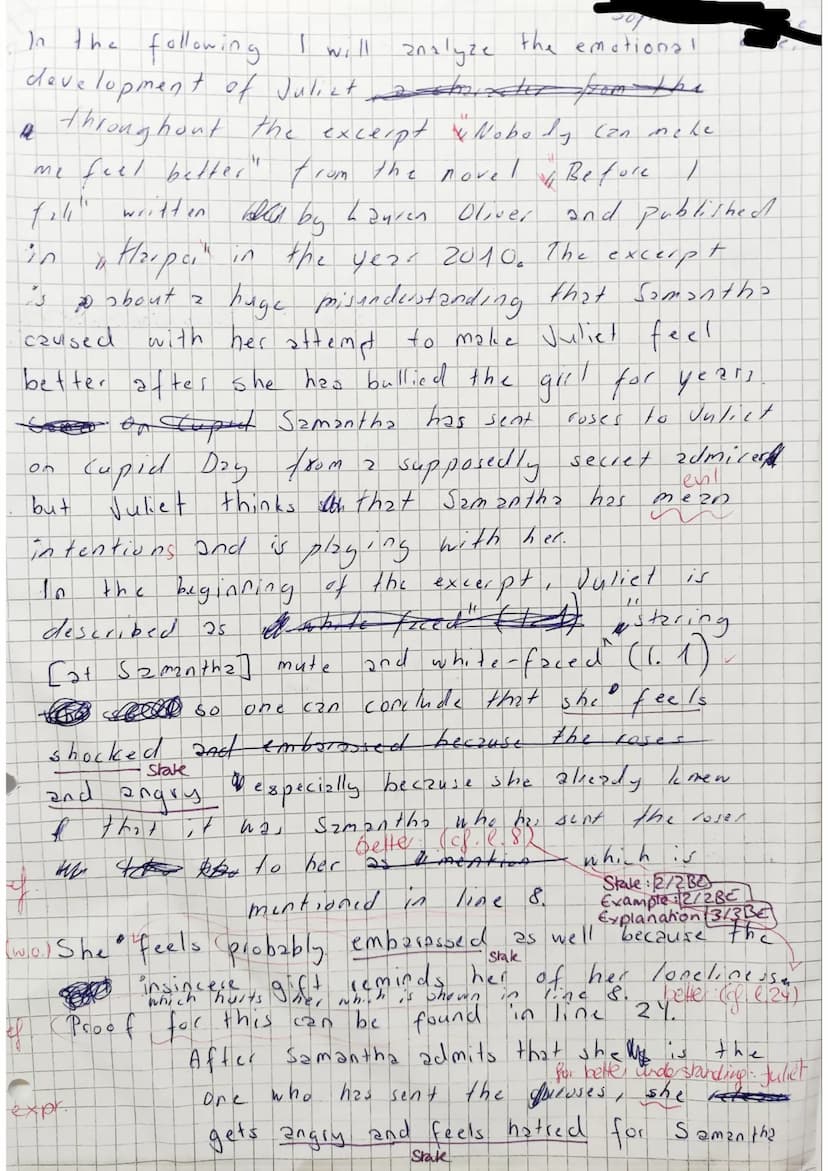 In the following I will analyze the emotional
development of Juliet a character from the
throughout the excerpt "Nobody can make
me feel better" from the novel "Before I
fall" written by Lauren Oliver and published
in "Harper" in the year 2010. The excerpt
is about a huge misunderstanding that Samantha
caused with her attempt to make Juliet feel
better after she has bullied the girl for years.
On Cupid Samantha has sent roses to Juliet
on Cupid Day from a supposedly secret admirer
evil
but Juliet thinks that Samantha has mean
intentions and is playing with her.
In the beginning of the excerpt, Juliet is
described as "staring
[at Samantha] mute and white-faced" (l. 1)
so one can conclude that she feels
shocked and embarassed because the roses
State
and angry especially because she already knew
that it was Samantha who has sent the roses
better (cf. l. 8)
to her as mention which is
ef.
State: 2/2BE
mentioned in line 8.
Example: 2/2BE
Explanation 3/3BE
(w.o.) She feels probably embarassed as well because the
State
insincere gift reminds her of her loneliness
which hurts her which is shown in line 8. better (cf. l. 24)
ef Proof for this can be found in line 24.
After Samantha admits that she is the
for better understanding: Juliet
one who has sent the roses, she
expr.
gets angry and feels hatred for Samantha
State